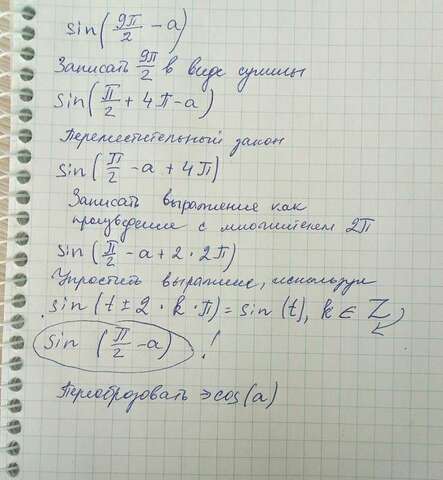 sin(9π/2 - a)
Записать 9π/2 в виде суммы
sin(π/2 + 4π - a)
Переместительный закон
sin(π/2 - a + 4π)
Записать выражение как
произведение с множителем 2π
sin(π/2 - a + 2 · 2π)
Упростить выражение, используя
sin(t ± 2 · k · π) = sin(t), k ∈ Z
sin(π/2 - a) !
Переобразовать ⇒ cos(a)